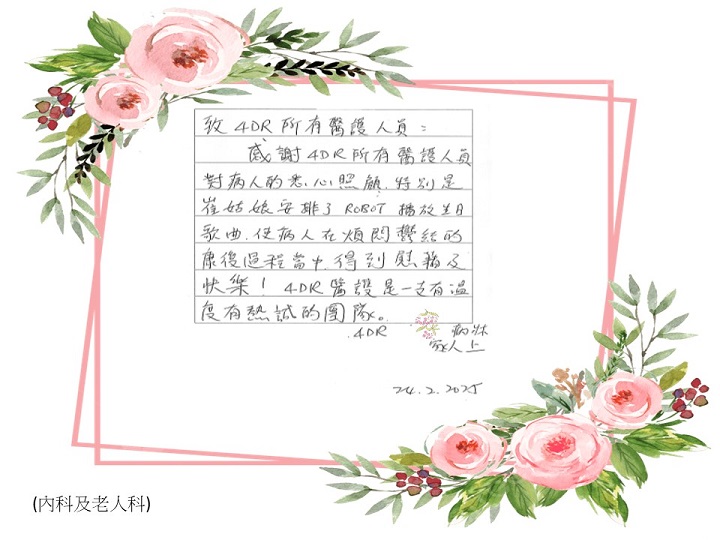 致 4DR 所有醫護人員：
感謝 4DR 所有醫護人員
對病人的悉心照顧，特別是
崔姑娘安排了 ROBOT 播放生日
歌曲，使病人在煩悶鬱結的
康復過程當中，得到慰藉及
快樂！4DR 醫護是一支有溫
度有熱誠的團隊。
4DR 病床
家人上
24.2.2025
(內科及老人科)